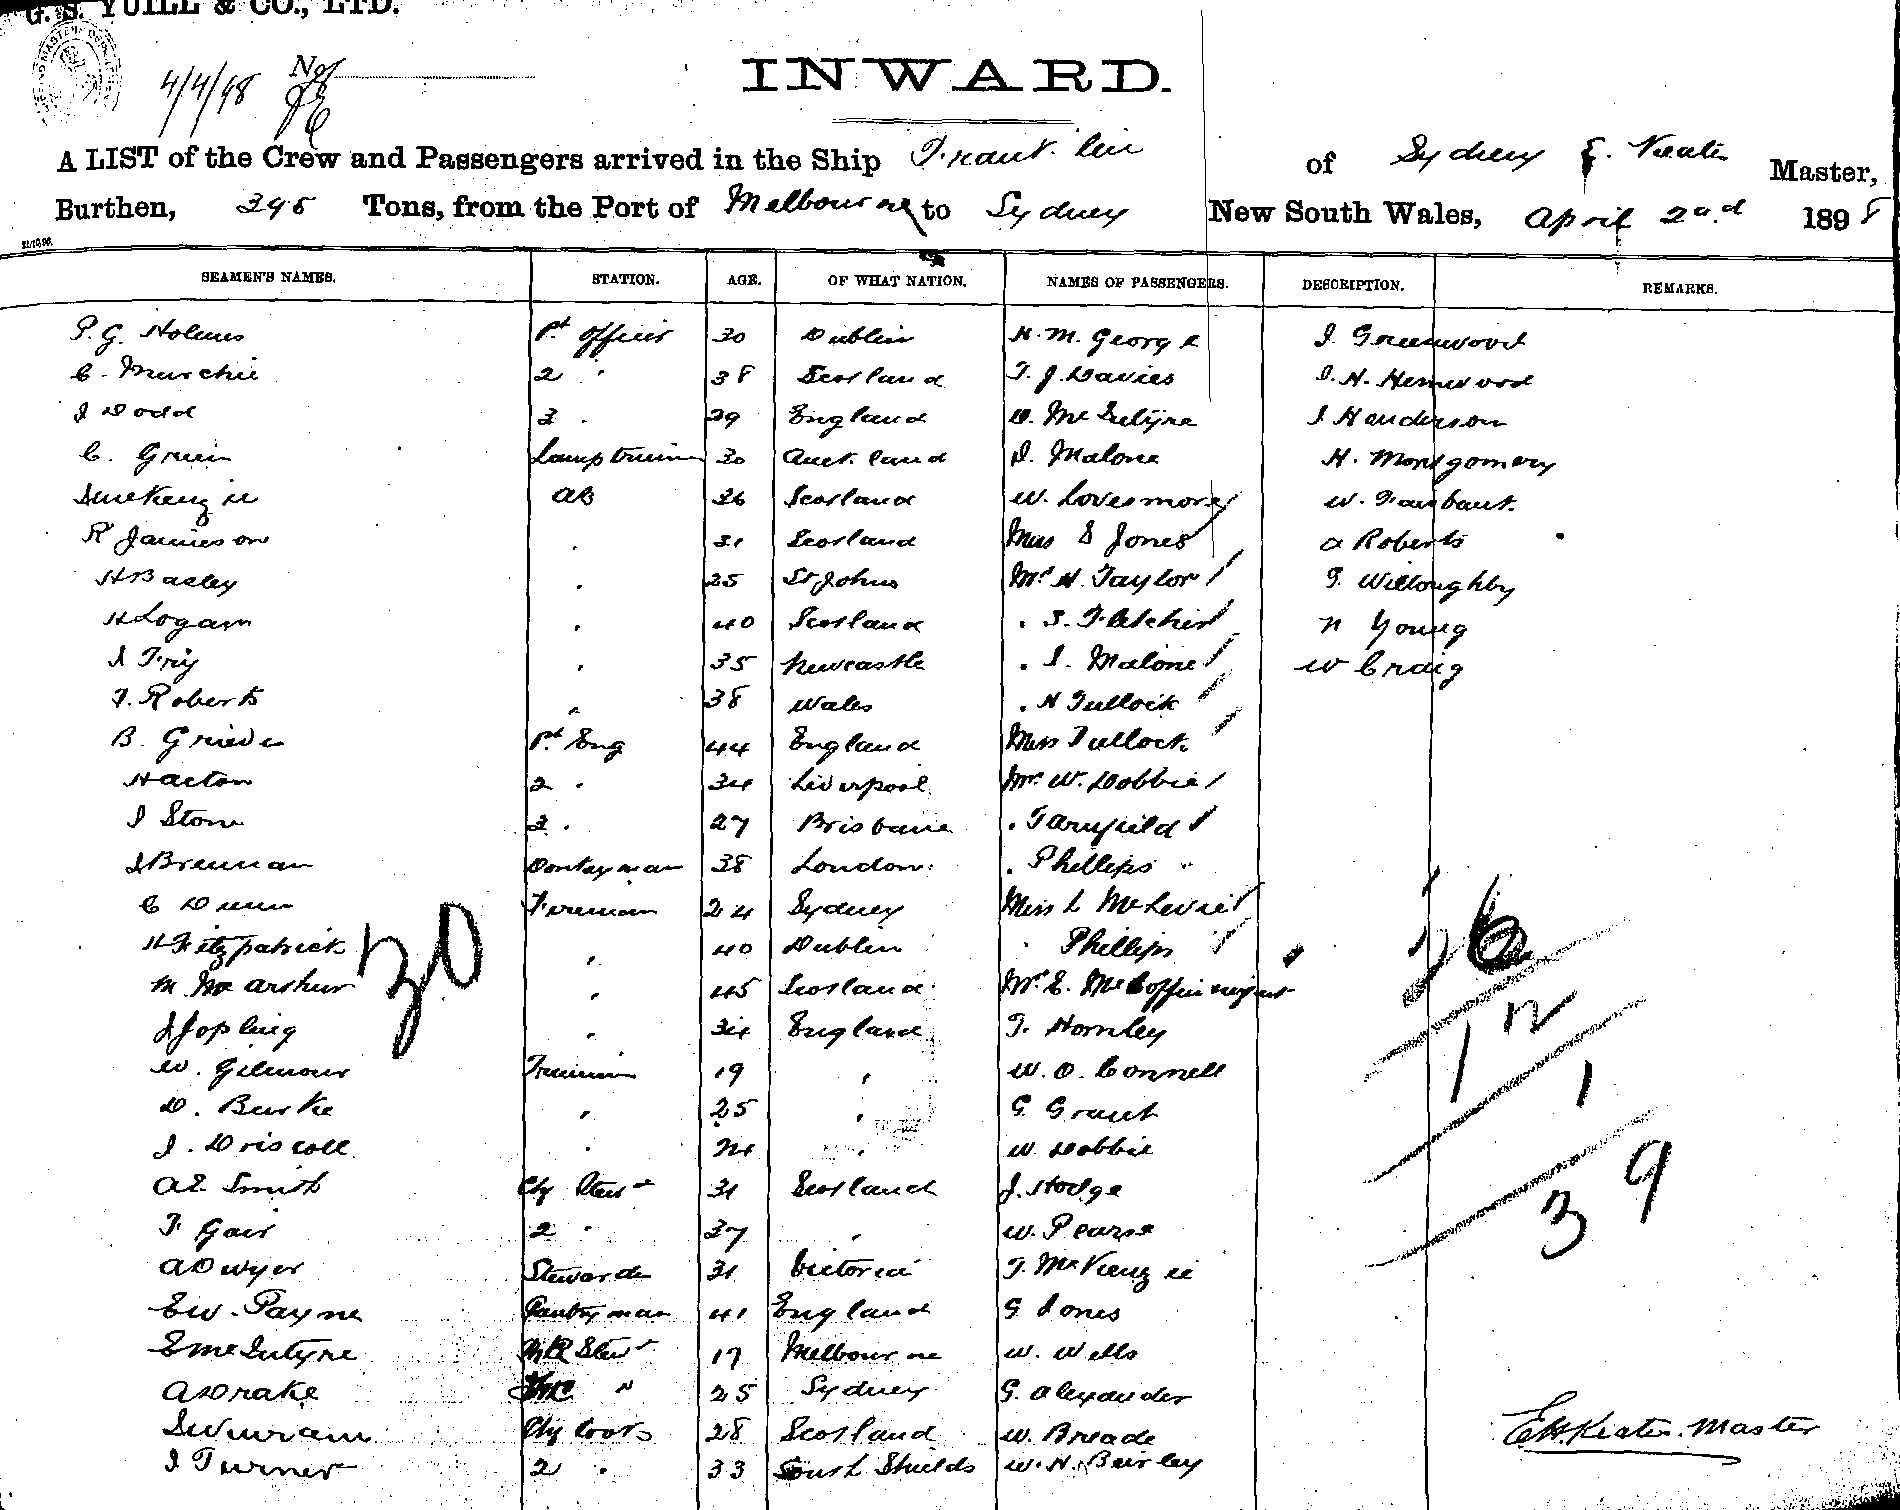 G. S. YUILL & CO., LTD.
4/4/98 No
INWARD.
A LIST of the Crew and Passengers arrived in the Ship Franklin of Sydney E. Keates Master,
Burthen, 395 Tons, from the Port of Melbourne to Sydney New South Wales, April 2nd 1898
SEAMEN'S NAMES. STATION. AGE. OF WHAT NATION. NAMES OF PASSENGERS. DESCRIPTION. REMARKS.
P. G. Holmes 1st Officer 30 Dublin H. M. George J Greenwood
C. Murchie 2 " 38 Scotland T. J. Davies J. H. Henwood
J Dodd 3 " 29 England D. McIntyre J Henderson
C. Green Lamptrimmer 30 Auckland D. Malone H. Montgomery
J McKenzie AB 26 Scotland W. Lovesmore W.
R Jamieson " 31 Scotland Miss S Jones A Roberts
H Basley " 25 St Johns Mrs H. Taylor G. Willoughby
H Logan " 40 Scotland " S. Fletcher N Young
J Fry " 35 Newcastle " J. Malone W Craig
T. Roberts " 38 Wales " H Tullock
B. Grieve 1st Eng 44 England Miss Tullock
H Acton 2 " 34 Liverpool Mr W. Dobbie
J Stone 3 " 27 Brisbane " Garnfield
J Brennan Donkeyman 38 London " Phillips
C Dunn Fireman 24 Sydney Miss L
H Fitzpatrick " 40 Dublin " Phillips
30 26
M McArthur " 45 Scotland Mr E.
J Jopling " 34 England T. Hornley 12
W. Gilmour Trimmer 19 " W. O. Connell
D. Burke " 25 " G Grant 1
J. Driscoll " 24 " W. Dobbie
A E Smith Chf Stewd 31 Scotland J. Hodge 39
T. Gair 2 " 37 " W. Pearse
A Dwyer Stewards 31 Victoria T. McKenzie
E W. Payne Pantryman 41 England G Jones
E McIntyre Stewd 17 Melbourne W. Wells
A Drake " 25 Sydney G. Alexander
Chf Cook 28 Scotland W. Breade
J Turner 2 " 33 South Shields W. H. Burley
E H. Keates. Master